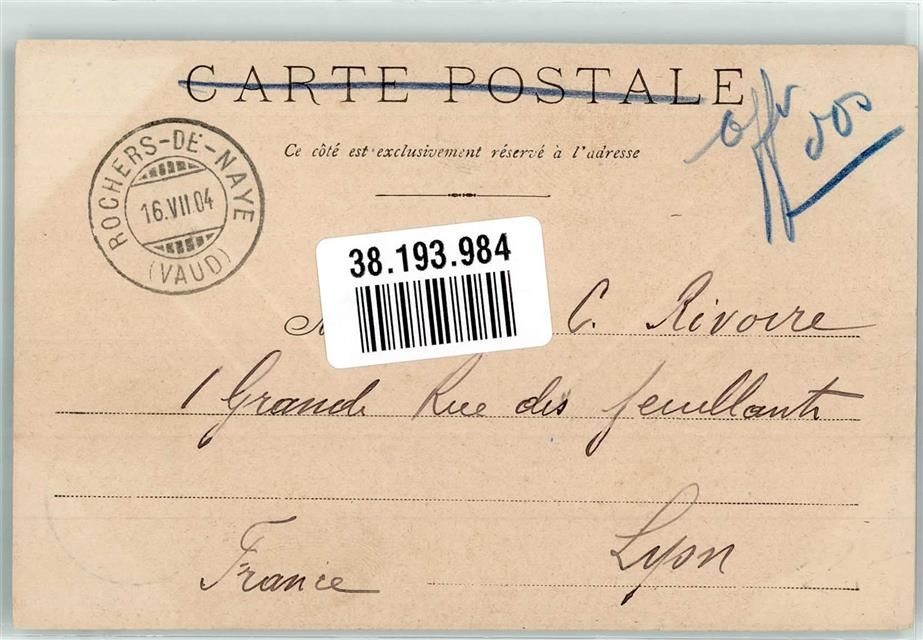 CARTE POSTALE
Ce côté est exclusivement réservé à l'adresse
ROCHERS-DE-NAYE
16.VII.04
(VAUD)
38.193.984
C. Rivoire
1 Grande Rue des feuillants
Lyon
France